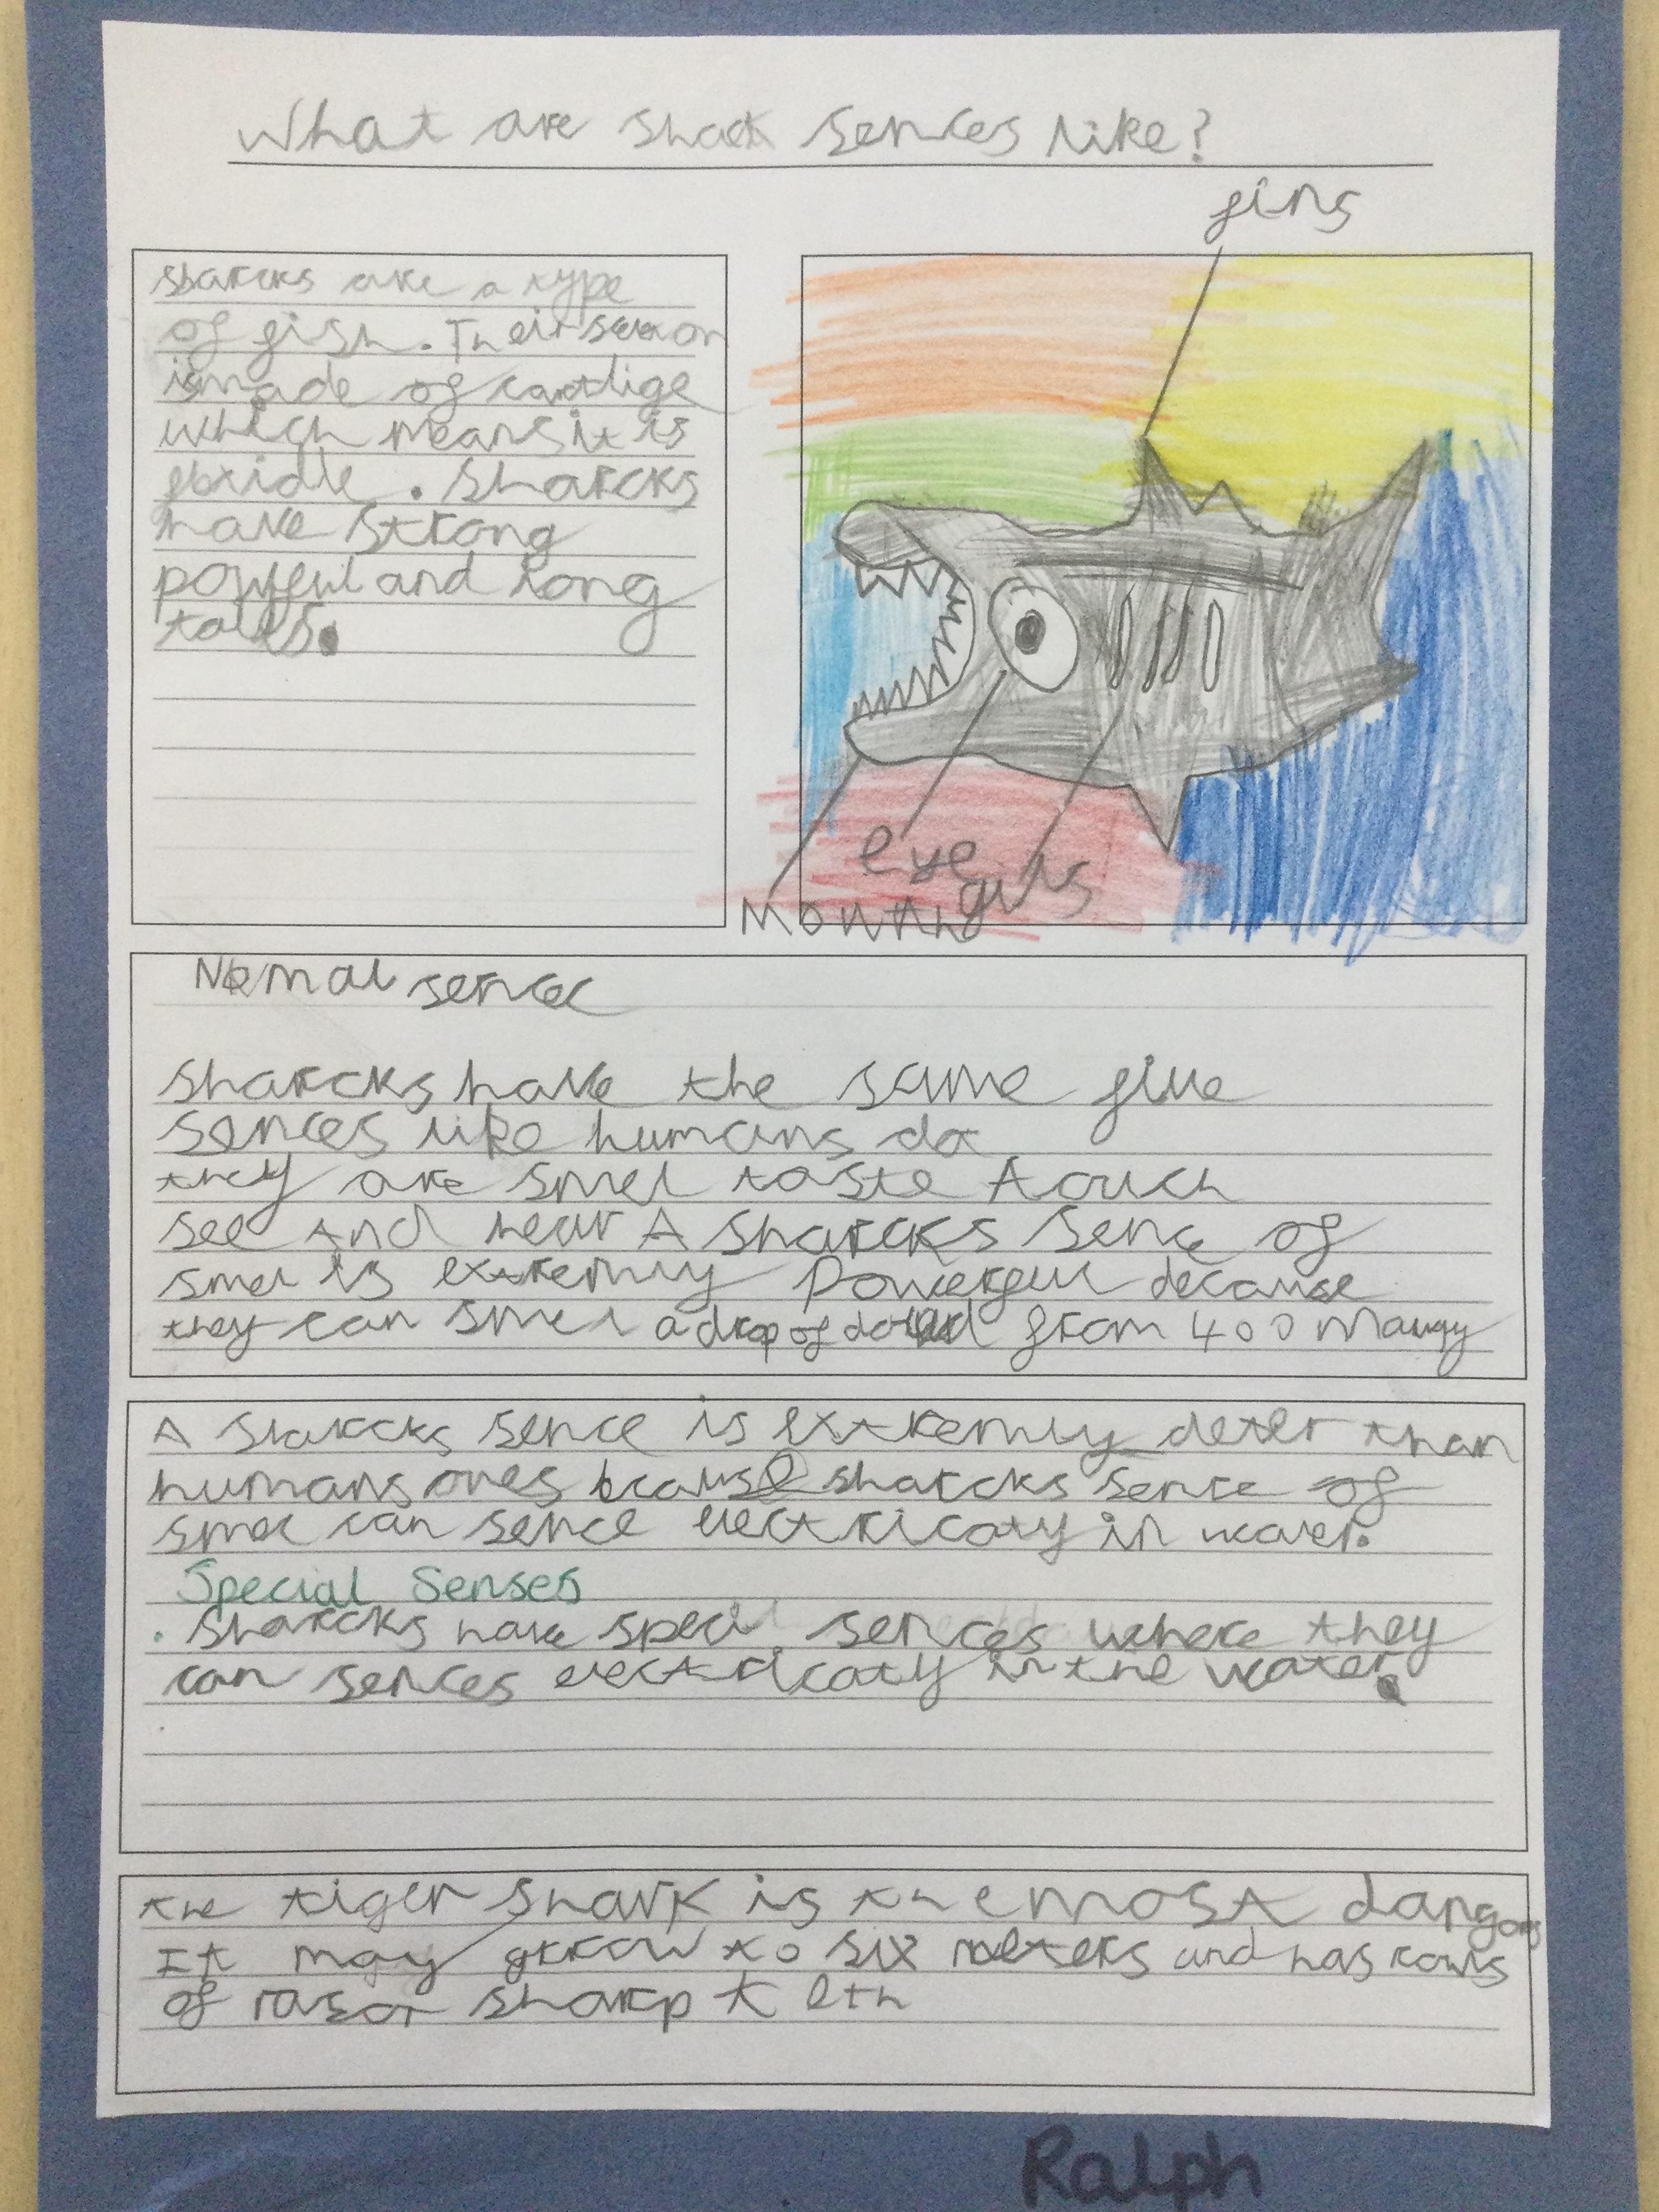 What are shack sences like?
fins
sharcks are a type
of fish. Their
is made of cartlige
which means it is
. sharcks
have strong
powful and long
tails.
eye
gils
Mowth
Nomal sence
sharcks have the same five
sences like humans do
they are smel taste touch
see And hear A sharcks sence of
smel is extremly Powerful decause
they can smel a drop of from 400 M away
A sharcks sence is extremly deter than
humans ones because sharcks sence of
smel can sence electricaty in water.
Special Senses
. sharcks have special sences where they
can sences electricaty in the water.
the tiger shark is the most dangors
It may grrow to six meters and has rows
of rasor sharp teth
Ralph